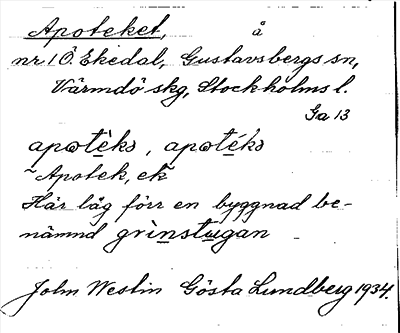 Apoteket, å
nr 1 Ö Ekedal, Gustavsbergs sn,
Värmdö skg, Stockholms l.
Ga 13
apotèks, apoték̀s
~Apotek, ek~
Här låg förr en byggnad be-
nämnd grinstugan
John Westin Gösta Lundberg 1934.